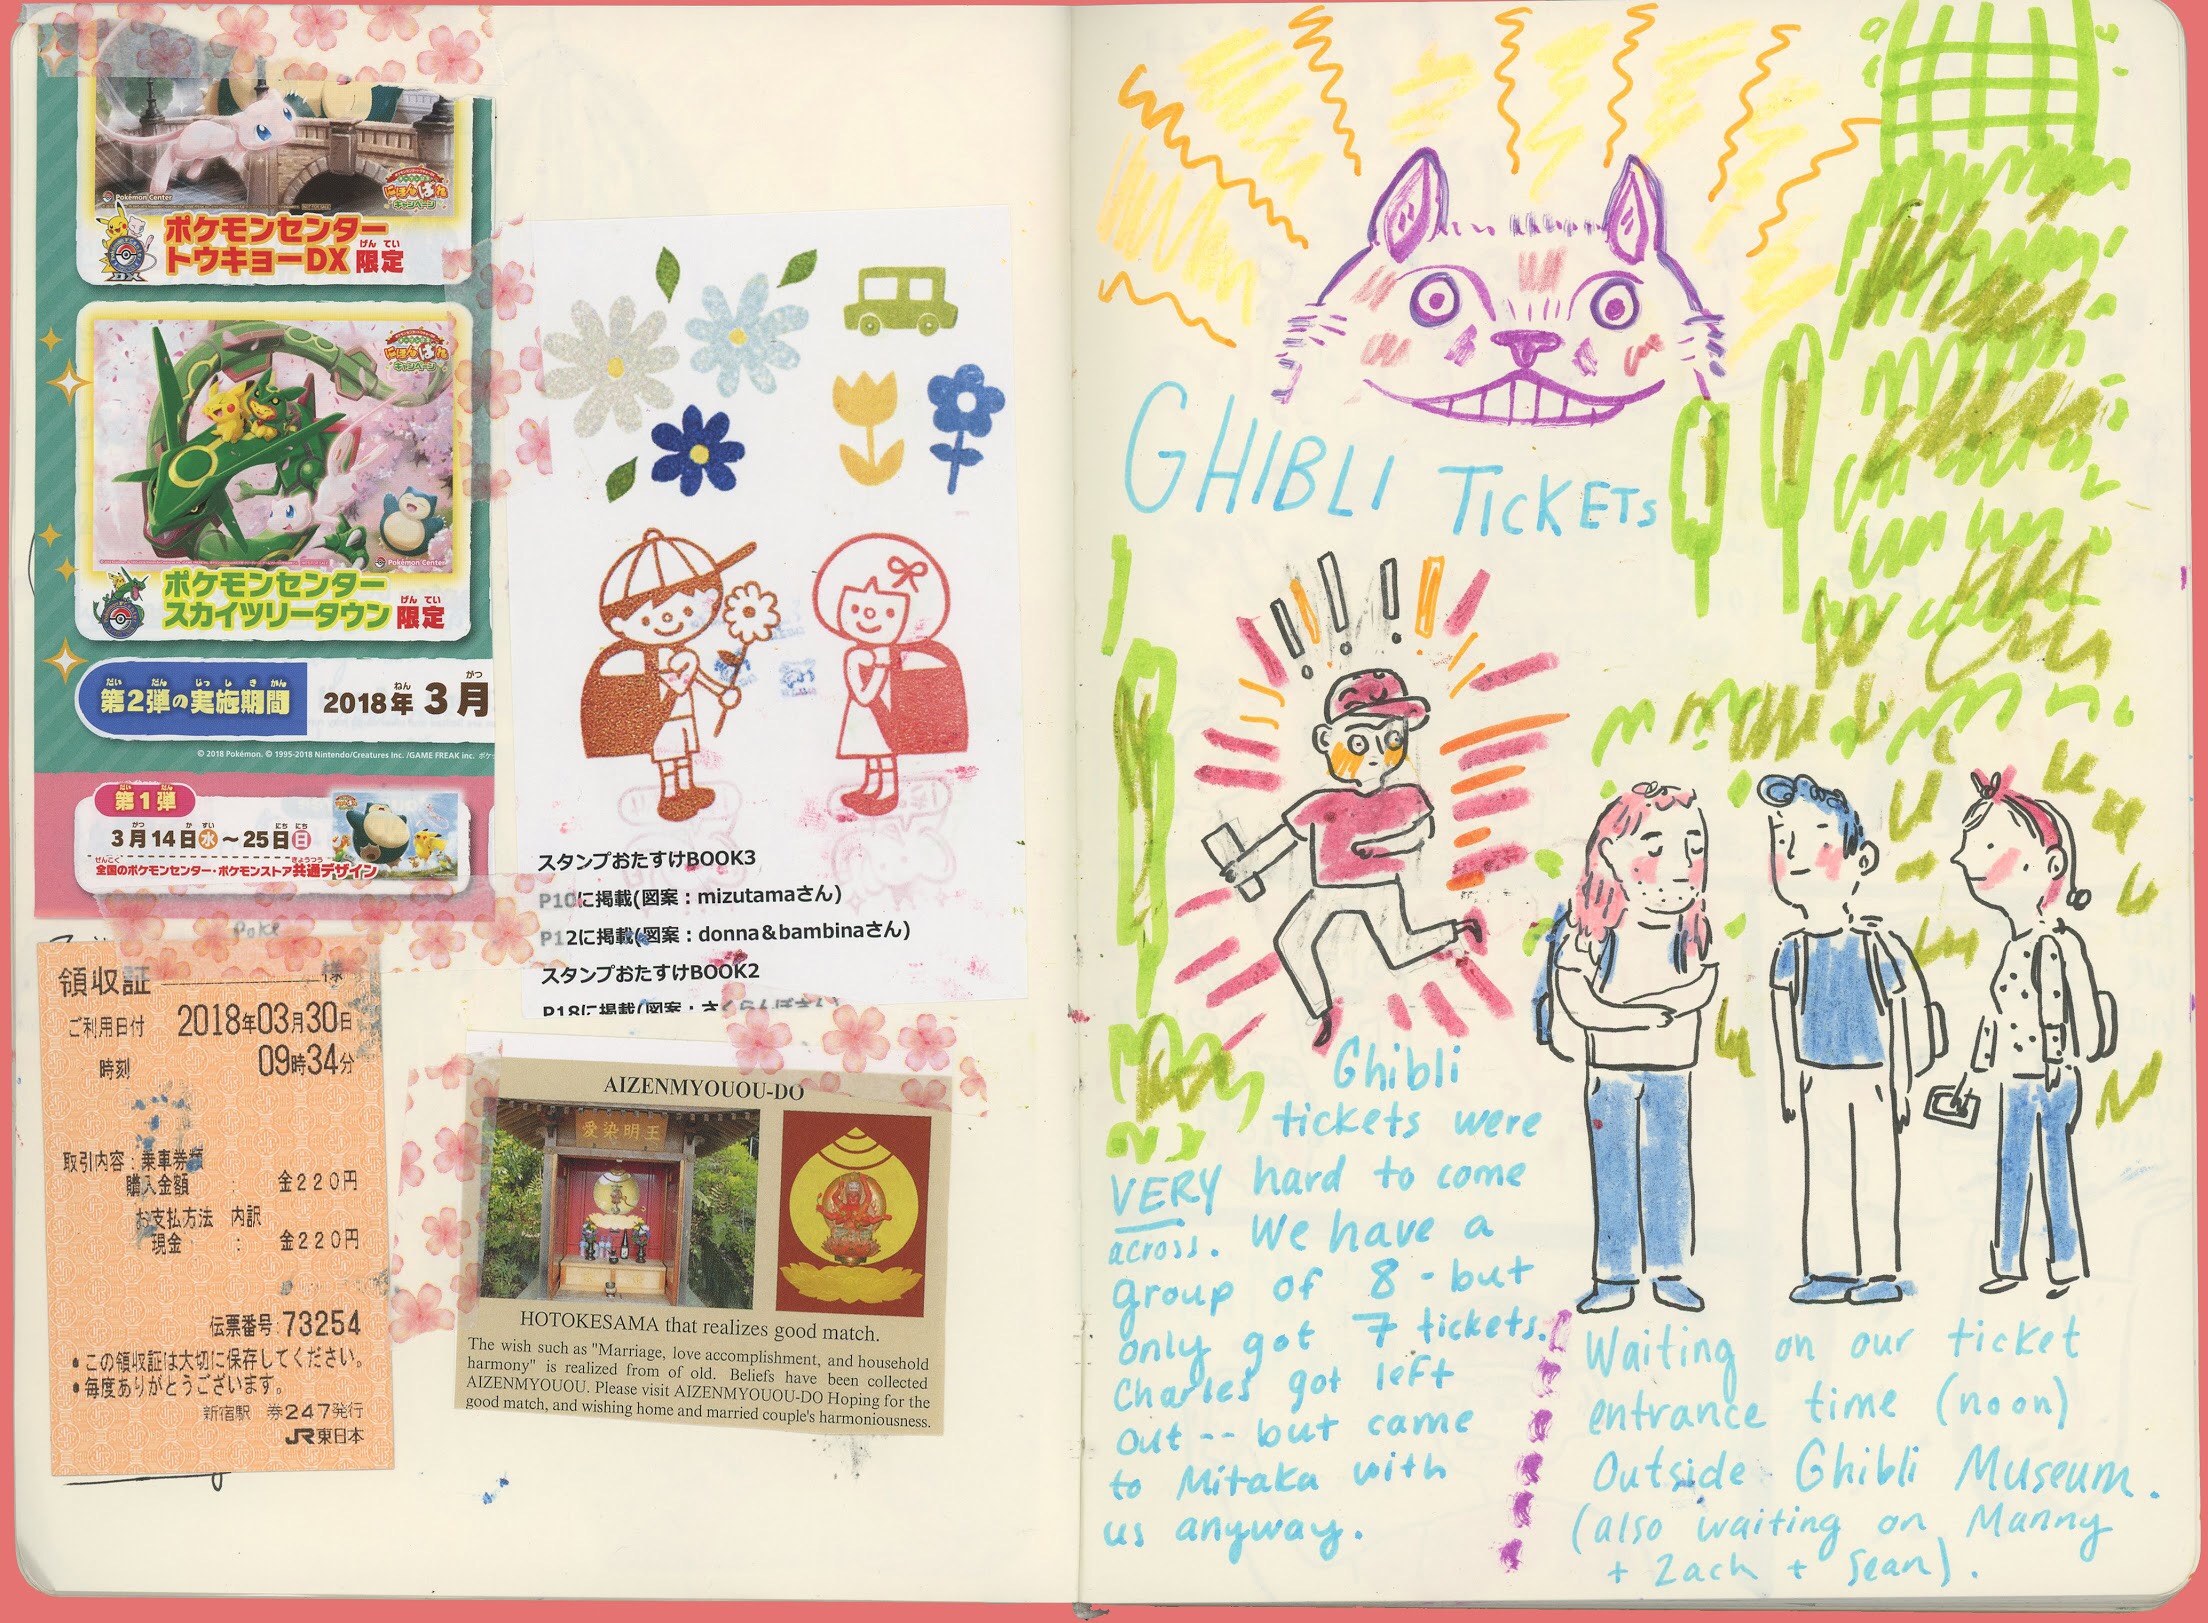 Pokémon Center
にほんばれ
キャンペーン
ポケモンセンター
トウキョーDX 限定
げん てい
にほんばれ
キャンペーン
Pokémon Center
ポケモンセンター
スカイツリータウン 限定
げん てい
だい だん じっ し き かん
第2弾の実施期間
ねん がつ
2018年 3月
© 2018 Pokémon. © 1995-2018 Nintendo/Creatures Inc. /GAME FREAK inc.
だい だん
第1弾
がつ か すい にち にち
3月14日水～25日日
ぜんこく きょうつう
全国のポケモンセンター・ポケモンストア共通デザイン
Poke
領収証 様
ご利用日付 2018年03月30日
時刻 09時34分
取引内容：乗車券類
購入金額 ： 金220円
お支払方法 内訳
現金 ： 金220円
伝票番号:73254
•この領収証は大切に保存してください。
•毎度ありがとうございます。
新宿駅 券247発行
JR東日本
スタンプおたすけBOOK3
P10に掲載(図案：mizutamaさん)
P12に掲載(図案：donna&bambinaさん)
スタンプおたすけBOOK2
P18に掲載(図案：さくらんぼさん)
AIZENMYOUOU-DO
愛染明王
HOTOKESAMA that realizes good match.
The wish such as "Marriage, love accomplishment, and household
harmony" is realized from of old. Beliefs have been collected
AIZENMYOUOU. Please visit AIZENMYOUOU-DO Hoping for the
good match, and wishing home and married couple's harmoniousness.
GHIBLI TICKETS
!!!!!
Ghibli
tickets were
VERY hard to come
across. We have a
group of 8 - but
only got 7 tickets.
Charles got left
out -- but came
to Mitaka with
us anyway.
Waiting on our ticket
entrance time (noon)
Outside Ghibli Museum.
(also waiting on Manny
+ Zach + Sean).